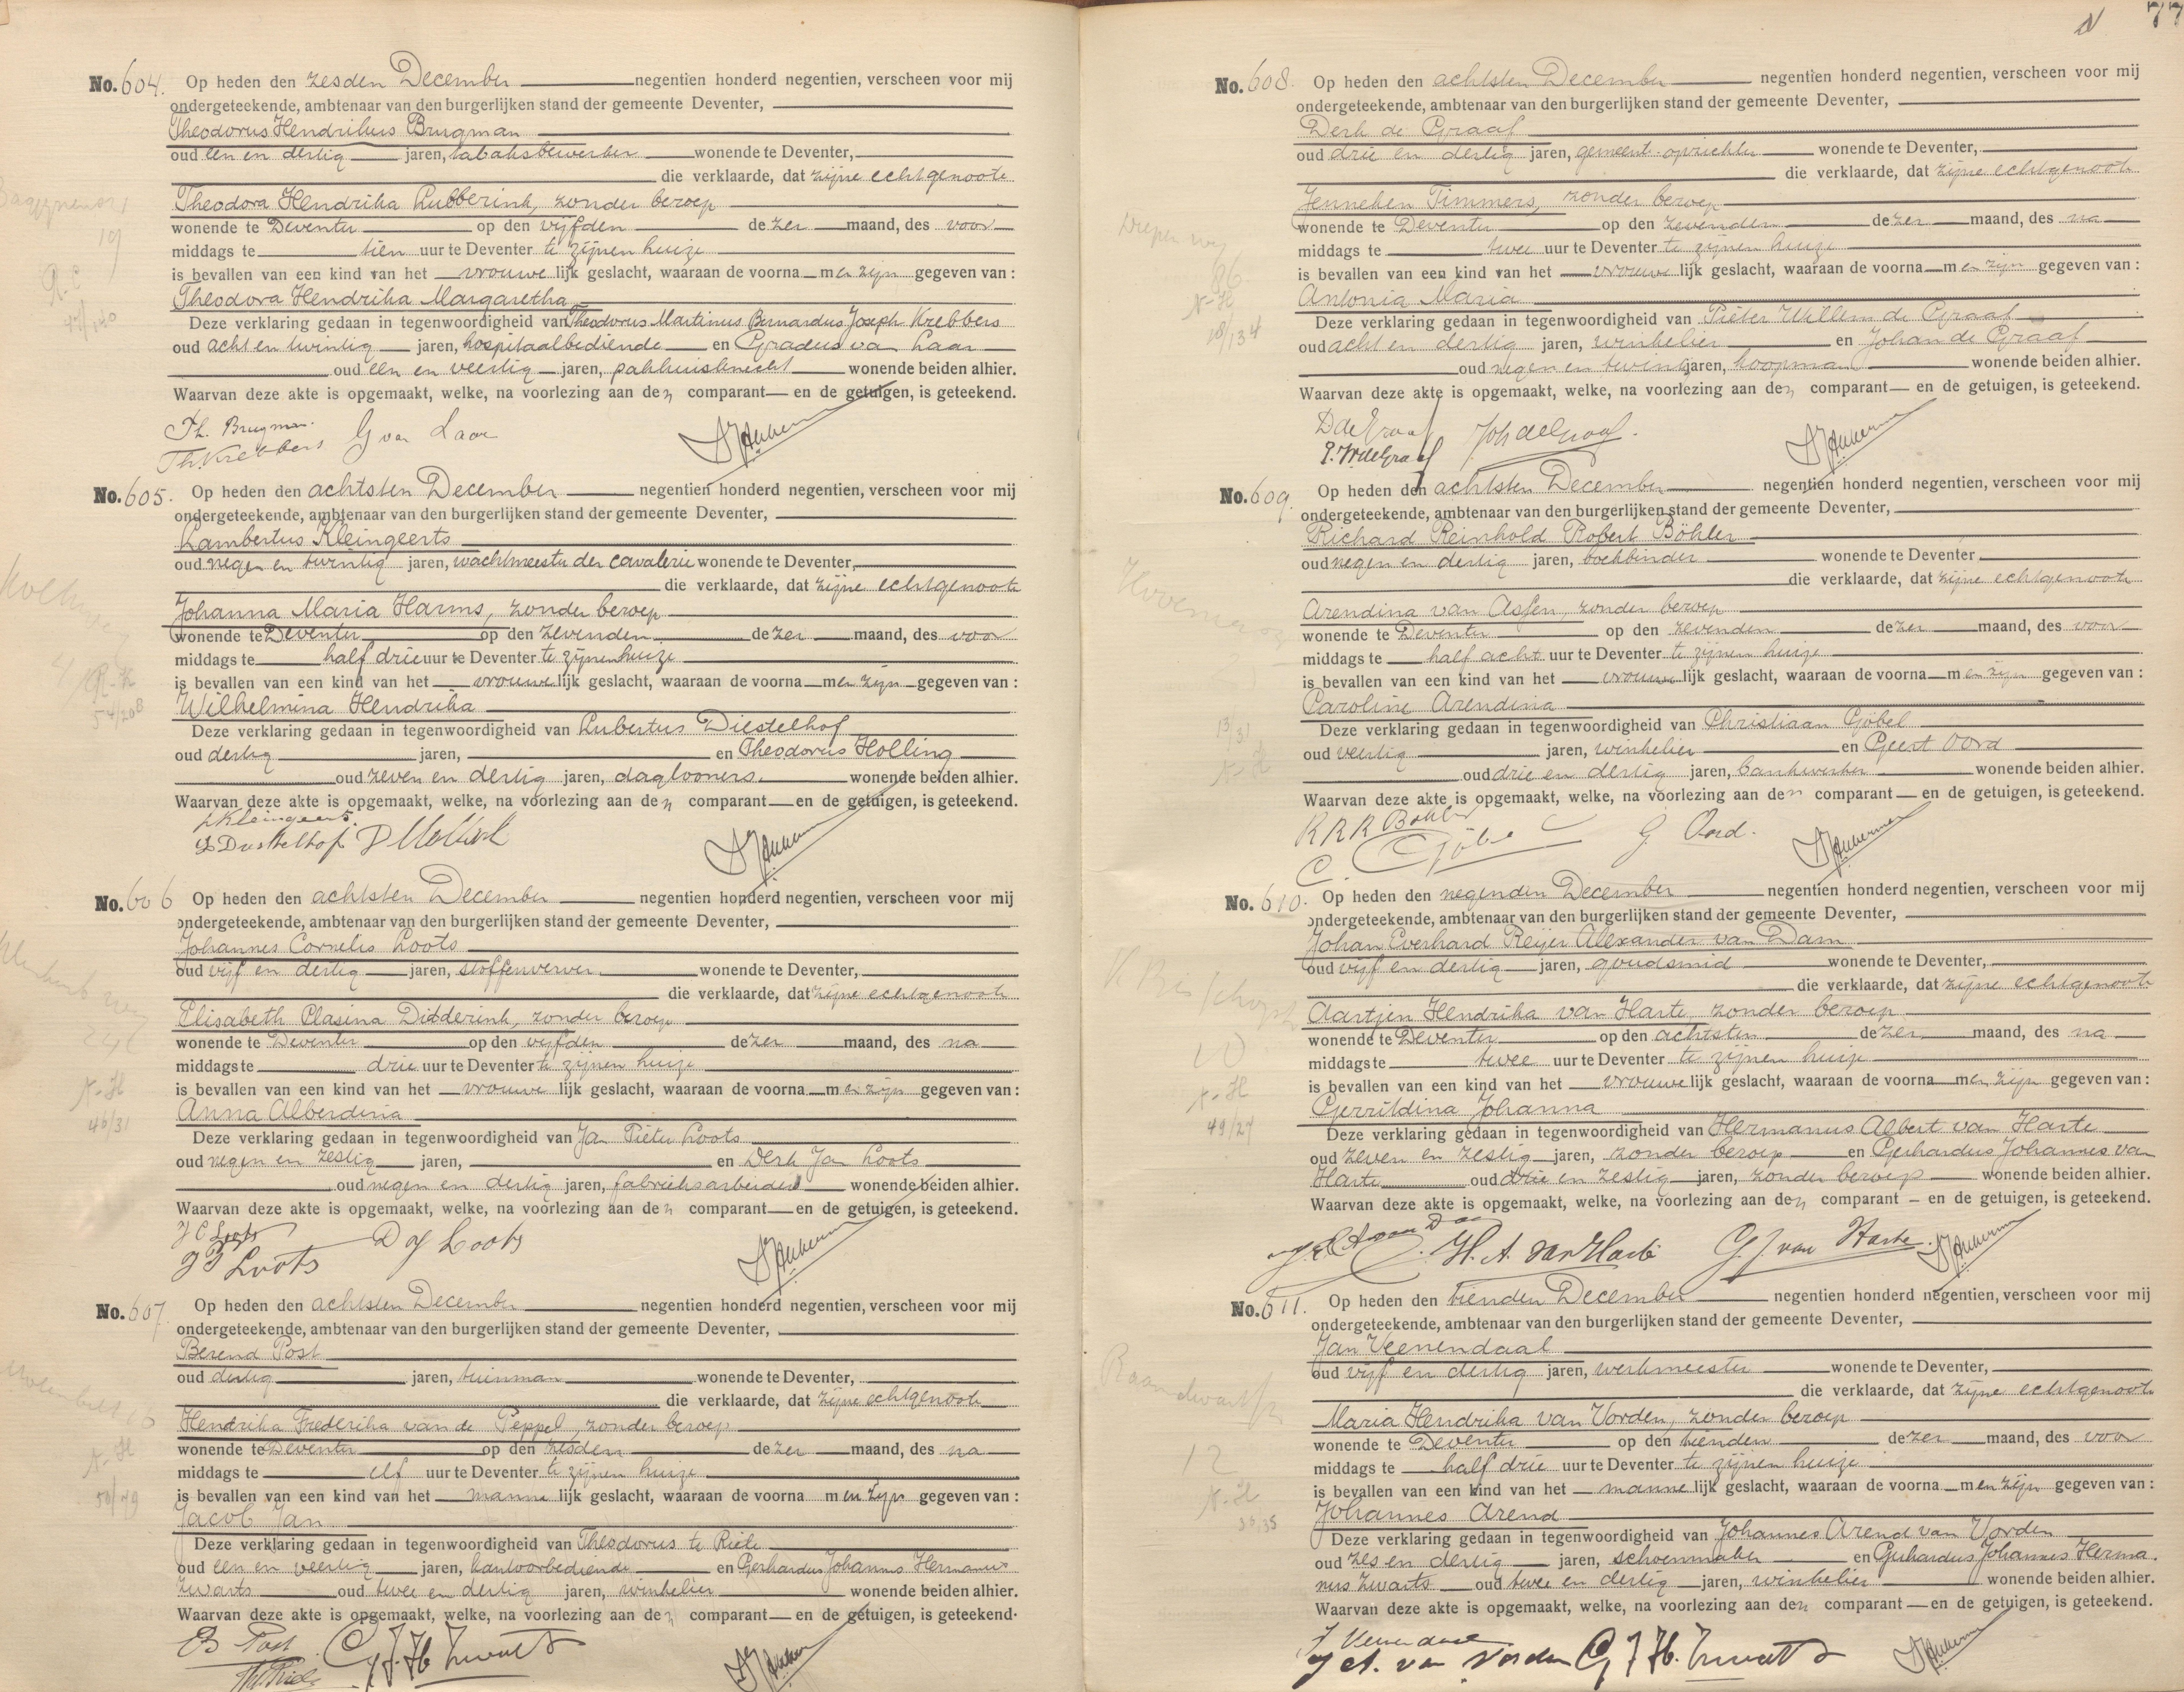 No. 604. Op heden den zesden December negentien honderd negentien, verscheen voor mij
ondergeteekende, ambtenaar van den burgerlijken stand der gemeente Deventer,
Theodorus Hendrikus Brugman
oud een en dertig jaren, tabaksbewerker wonende te Deventer,
die verklaarde, dat zijne echtgenoote
Theodora Hendrika Lubberink, zonder beroep
wonende te Deventer op den vijfden dezer maand, des voor
middags te tien uur te Deventer te zijnen huize
is bevallen van een kind van het vrouwelijk geslacht, waaraan de voornamen zijn gegeven van :
Theodora Hendrika Margaretha
Deze verklaring gedaan in tegenwoordigheid van Theodorus Martinus Bernardus Joseph Krebbers
oud acht en twintig jaren, hospitaalbediende en Gradus van Laar
oud een en veertig jaren, pakhuisknecht wonende beiden alhier.
Waarvan deze akte is opgemaakt, welke, na voorlezing aan den comparant en de getuigen, is geteekend.
Th. Brugman. G van Laar
Th. Krebbers
No. 605. Op heden den achtsten December negentien honderd negentien, verscheen voor mij
ondergeteekende, ambtenaar van den burgerlijken stand der gemeente Deventer,
Lambertus Kleingeerts
oud negen en twintig jaren, wachtmeester der cavalerie wonende te Deventer,
die verklaarde, dat zijne echtgenoote
Johanna Maria Harms, zonder beroep
wonende te Deventer op den zevenden dezer maand, des voor
middags te half drie uur te Deventer te zijnen huize
is bevallen van een kind van het vrouwelijk geslacht, waaraan de voornamen zijn gegeven van :
Wilhelmina Hendrika
Deze verklaring gedaan in tegenwoordigheid van Lubertus Diestelhof
oud dertig jaren, en Theodorus Holling
oud zeven en dertig jaren, daglooners. wonende beiden alhier.
Waarvan deze akte is opgemaakt, welke, na voorlezing aan den comparant en de getuigen, is geteekend.
L Kleingeerts.
No. 606 Op heden den achtsten December negentien honderd negentien, verscheen voor mij
ondergeteekende, ambtenaar van den burgerlijken stand der gemeente Deventer,
Johannes Cornelis Loots
oud vijf en dertig jaren, stoffenverver wonende te Deventer,
die verklaarde, dat zijne echtgenoote
Elisabeth Plasina Didderink, zonder beroep
wonende te Deventer op den vijfden dezer maand, des na
middags te drie uur te Deventer te zijnen huize
is bevallen van een kind van het vrouwelijk geslacht, waaraan de voornamen zijn gegeven van :
Anna Alberdina
Deze verklaring gedaan in tegenwoordigheid van Jan Pieter Loots
oud negen en zestig jaren, en Derk Jan Loots
oud negen en dertig jaren, fabrieksarbeiders wonende beiden alhier.
Waarvan deze akte is opgemaakt, welke, na voorlezing aan den comparant en de getuigen, is geteekend.
J C Loots D J Loots
J P Loots
No. 607 Op heden den achtsten December negentien honderd negentien, verscheen voor mij
ondergeteekende, ambtenaar van den burgerlijken stand der gemeente Deventer,
Berend Post
oud dertig jaren, tuinman wonende te Deventer,
die verklaarde, dat zijne echtgenoote
Hendrika Frederika van de Peppel, zonder beroep
wonende te Deventer op den zesden dezer maand, des na
middags te elf uur te Deventer te zijnen huize
is bevallen van een kind van het mannelijk geslacht, waaraan de voornamen zijn gegeven van :
Jacob Jan
Deze verklaring gedaan in tegenwoordigheid van Theodorus te Riele
oud een en veertig jaren, kantoorbediende en Gerhardus Johannes Hermanus
Zwarts oud twee en dertig jaren, winkelier wonende beiden alhier.
Waarvan deze akte is opgemaakt, welke, na voorlezing aan den comparant en de getuigen, is geteekend.
B Post G J H Zwarts
77
No. 608. Op heden den achtsten December negentien honderd negentien, verscheen voor mij
ondergeteekende, ambtenaar van den burgerlijken stand der gemeente Deventer,
Derk de Graaf
oud drie en dertig jaren, gemeent. opzichter wonende te Deventer,
die verklaarde, dat zijne echtgenoote
Jenneken Timmers, zonder beroep
wonende te Deventer op den zevenden dezer maand, des na
middags te twee uur te Deventer te zijnen huize
is bevallen van een kind van het vrouwelijk geslacht, waaraan de voornamen zijn gegeven van :
Antonia Maria
Deze verklaring gedaan in tegenwoordigheid van Pieter Willem de Graaf
oud acht en dertig jaren, winkelier en Johan de Graaf
oud negen en twintig jaren, koopman wonende beiden alhier.
Waarvan deze akte is opgemaakt, welke, na voorlezing aan den comparant en de getuigen, is geteekend.
D de Graaf Joh de Graaf.
P. W. de Graaf
No. 609. Op heden den achtsten December negentien honderd negentien, verscheen voor mij
ondergeteekende, ambtenaar van den burgerlijken stand der gemeente Deventer,
Richard Reinhold Robert Böhler
oud negen en dertig jaren, boekbinder wonende te Deventer
die verklaarde, dat zijne echtgenoote
Arendina van Assen, zonder beroep
wonende te Deventer op den zevenden dezer maand, des voor
middags te half acht uur te Deventer te zijnen huize
is bevallen van een kind van het vrouwelijk geslacht, waaraan de voornamen zijn gegeven van :
Caroline Arendina
Deze verklaring gedaan in tegenwoordigheid van Christiaan Göbel
oud veertig jaren, winkelier en Geert Oord
oud drie en dertig jaren, bankwerker wonende beiden alhier.
Waarvan deze akte is opgemaakt, welke, na voorlezing aan den comparant en de getuigen, is geteekend.
R R R Böhler G. Oord.
C. Göbel
No. 610. Op heden den negenden December negentien honderd negentien, verscheen voor mij
ondergeteekende, ambtenaar van den burgerlijken stand der gemeente Deventer,
Johan Everhard Reijer Alexander van Dam
oud vijf en dertig jaren, goudsmid wonende te Deventer,
die verklaarde, dat zijne echtgenoote
Aartjen Hendrika van Harte, zonder beroep
wonende te Deventer op den achtsten dezer maand, des na
middags te twee uur te Deventer te zijnen huize
is bevallen van een kind van het vrouwelijk geslacht, waaraan de voornamen zijn gegeven van :
Gerritdina Johanna
Deze verklaring gedaan in tegenwoordigheid van Hermanus Albert van Harte
oud zeven en zestig jaren, zonder beroep en Gerhardus Johannes van
Harte oud drie en zestig jaren, zonder beroep wonende beiden alhier.
Waarvan deze akte is opgemaakt, welke, na voorlezing aan den comparant en de getuigen, is geteekend.
H. A. van Harte G. J. van Harte.
No. 611. Op heden den tienden December negentien honderd negentien, verscheen voor mij
ondergeteekende, ambtenaar van den burgerlijken stand der gemeente Deventer,
Jan Veenendaal
oud vijf en dertig jaren, werkmeester wonende te Deventer,
die verklaarde, dat zijne echtgenoote
Maria Hendrika van Vorden, zonder beroep
wonende te Deventer op den tienden dezer maand, des voor
middags te half drie uur te Deventer te zijnen huize
is bevallen van een kind van het mannelijk geslacht, waaraan de voornamen zijn gegeven van :
Johannes Arend
Deze verklaring gedaan in tegenwoordigheid van Johannes Arend van Vorden
oud zes en dertig jaren, schoenmaker en Gerhardus Johannes Herma.
nus Zwarts oud twee en dertig jaren, winkelier wonende beiden alhier.
Waarvan deze akte is opgemaakt, welke, na voorlezing aan den comparant en de getuigen, is geteekend.
J Veenendaal
J A. van Vorden G J H. Zwarts